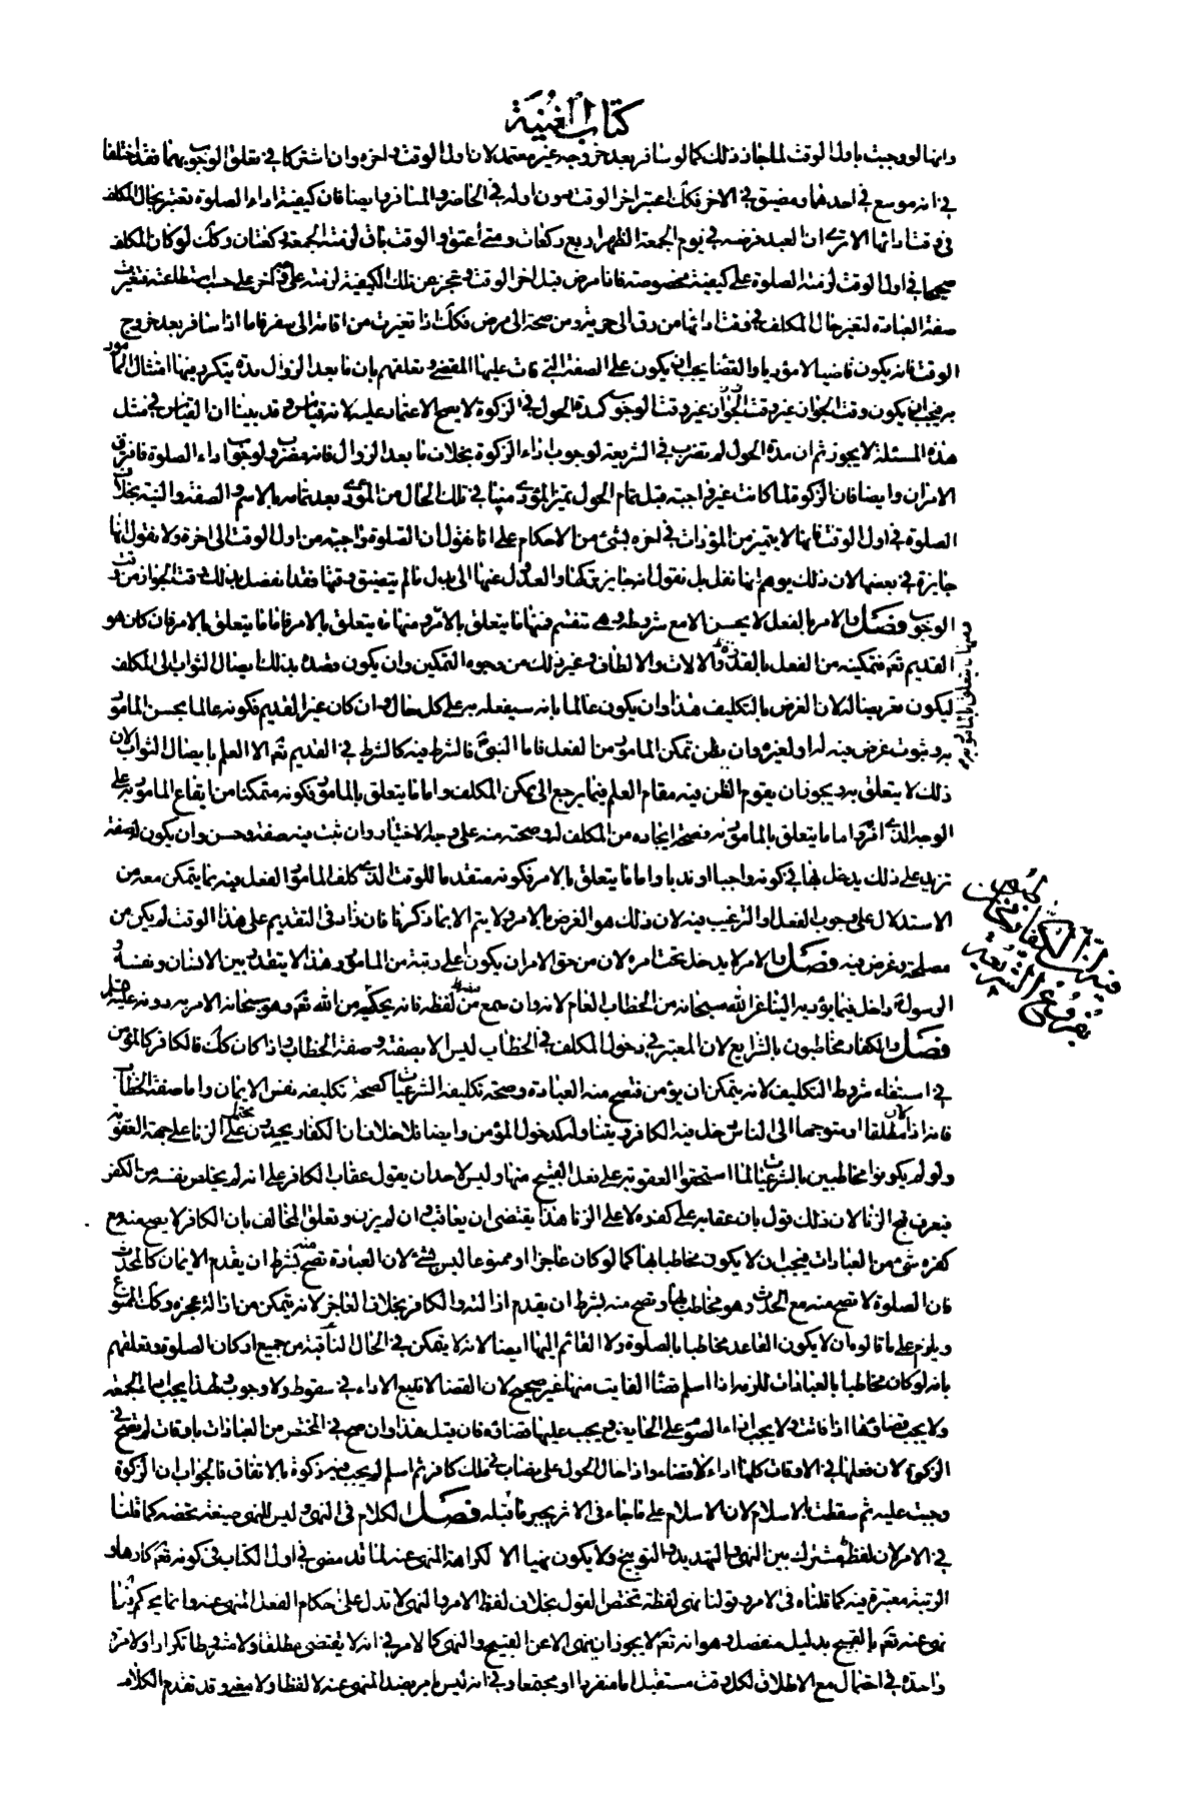 كتاب الغنية
وانها لو وجبت باول الوقت لما جاز ذلك كما لو سافر بعد خروجه غير معتمد لان اول الوقت واخره وان اشتركا في تعلق الوجوب بهما فقد اختلفا
في انه موسع في احدهما ومضيق في الاخر فكك اعتبر اخر الوقت دون اوله في الحاضر والمسافر وايضا فان كيفية اداء الصلوة تعتبر بحال المكلف
في وقت ادائها الا ترى ان العبد فرضه في يوم الجمعة الظهر اربع ركعات ومتى اعتق والوقت باق لزمته الجمعة ركعتان وكك لو كان المكلف
صحيحا في اول الوقت لزمته الصلوة على كيفية مخصوصة فاذا مرض قبل اخر الوقت وعجز عن تلك الكيفية لزمته على وجه اخر على حسب استطاعته فتغيرت
صفة العبادة لتغير حال المكلف في وقت ادائها من رق الى حرية ومن صحة الى مرض فكك اذا تغيرت من اقامة الى سفر فاما اذا سافر بعد خروج
الوقت فانه يكون قاضيا لا مؤديا والقضا يجب ان يكون على الصفة التي فات عليها المقضي وتعلقهم بان ما بعد الزوال مدة يتكرر فيها امتثال المامور
به فيجب ان يكون وقت الجواز غير وقت الوجوب كمدة الحول في الزكوة لا يصح الاعتماد عليه لانه قياس وقد بينا ان القياس في مثل
هذه المسئلة لا يجوز ثم ان مدة الحول لم تضرب في الشريعة لوجوب اداء الزكوة بخلاف ما بعد الزوال فانه مضروب لوجوب اداء الصلوة فافترق
الامران وايضا فان الزكوة لما كانت غير واجبة قبل تمام الحول تميز المؤدى منها في تلك الحال من المؤدى بعد تمامه بالاسم والصفة والنية بخلاف
الصلوة في اول الوقت فانها لا يتميز من المؤداة في اخره بشئ من الاحكام على انا نقول ان الصلوة واجبة من اول الوقت الى اخره ولا نقول انها
جايزة في بعضها لان ذلك يوهم انها نفل بل نقول انه جايز تركها والعدول عنها الى بدل ما لم يتضيق وقتها فقد انفصل بذلك وقت الجواز من وقت
الوجوب فصل والامر بالفعل لا يحسن الا مع شروط وهي تنقسم فمنها ما يتعلق بالامر ومنها ما يتعلق بالامر فاما ما يتعلق بالامر فان كان هو
ومنها ما يتعلق بالمامور به
القديم تعم فتمكينه من الفعل بالقدرة والالات والالطاف وغير ذلك من وجوه التمكين وان يكون قصده بذلك ايصال الثواب الى المكلف
ليكون تعريضا له لان الغرض بالتكليف هذا وان يكون عالما بانه سيفعله به على كل حال وان كان غير القديم فكونه عالما بحسن المامور
به وثبوت غرض فيه له او لغيره وان يظن تمكن المامور من الفعل فاما النبي ص فالشرط فيه كالشرط في القديم تعم الا العلم بايصال الثواب لان
ذلك لا يتعلق به ويجوز ان يقوم الظن فيه مقام العلم فيما يرجع الى تمكن المكلف واما ما يتعلق بالمامور فكونه متمكنا من ايقاع المامور به على
الوجه الذي امر به واما ما يتعلق بالمامور به فصحة ايجاده من المكلف له وصحته منه على وجه الاختيار وان ثبت فيه صفة وحسن وان يكون له صفة
تزيد على ذلك يدخل بها في كونه واجبا او ندبا واما ما يتعلق بالامر فكونه متقدما للوقت الذي كلف المامور الفعل فيه بما يتمكن معه من
الاستدلال على وجوب الفعل او الترغيب فيه لان ذلك هو الغرض بالامر ولا يتم الا بما ذكرنا فان زاد في التقديم على هذا الوقت لم يكن من
مصلحة وغرض فيه فصل والامر لا يدخل تحت امره لان من حق الامر ان يكون اعلى رتبة من المامور وهذا لا يتقدر بين الانسان ونفسه و
الرسول ص داخل فيما يؤديه الينا عن الله سبحانه من الخطاب العام لانه وان سمع من لفظه فانه يحكيه من الله تعم وهو سبحانه الامر به دونه عليه السلم
فيه ان الكفار مخاطبون
بفروع الشريعة
فصل والكفار مخاطبون بالشرايع لان المعتبر في دخول المكلف في الخطاب ليس الا بصفته وصفة الخطاب واذا كان كك فالكافر كالمؤمن
في استيفاء شروط التكليف لانه يتمكن ان يؤمن فتصح منه العبادة وصحة تكليفه الشرعيات كصحة تكليفه نفس الايمان واما صفة الخطاب
فانه اذا كان مطلقا او متوجها الى الناس دخل فيه الكافر ويتناوله كدخول المؤمن وايضا فلا خلاف ان الكفار يحدون على الزنا على جهة العقوبة
ولو لم يكونوا مخاطبين بالشرعيات لما استحقوا العقوبة على فعل القبيح منها وليس لاحد ان يقول عقاب الكافر على انه لم يخلص نفسه من الكفر
فيعرف قبح الزنا لان ذلك قول بان عقابه على كفره لا على الزنا هذا يقتضي ان يعاقب وان لم يزن وتعلق المخالف بان الكافر لا يصح منه مع
كفره شئ من العبادات فيجب ان لا يكون مخاطبا بها كما لو كان عاجزا او ممنوعا ليس بشئ لان العبادة تصح منه بشرط ان يقدم الايمان كالمحدث
فان الصلوة لا تصح منه مع الحدث وهو مخاطب بها وتصح منه بشرط ان يقدم ازالته والكافر بخلاف العاجز لانه يتمكن من ازالة عجزه وكك الممنوع
ويلزم على ما قالوه ان لا يكون القاعد مخاطبا بالصلوة ولا القائم اليها ايضا لانه لا يتمكن في الحال الثابتة من جميع اركان الصلوة وتعلقهم
بانه لو كان مخاطبا بالعبادات للزمه اذا اسلم قضا الفايت منها غير صحيح لان القضا لا يتبع الاداء في سقوط ولا وجوب ولهذا يجب اداء الجمعة
ولا يجب قضاؤها اذا فاتت ولا يجب اداء الصوم على الحايض ويجب عليها قضاؤه فان قيل هذا وان صح في المختص من العبادات باوقات لم يصح في
الزكوة لان فعلها في الاوقات كلها اداء لا قضاء واذا حال الحول على نصاب في ملك كافر ثم اسلم لم يجب فيه زكوة بالاتفاق فالجواب ان الزكوة
وجبت عليه ثم سقطت بالاسلام لان الاسلام على ما جاء في الاثر يجب ما قبله فصل الكلام في النهي ليس للنهي صيغة تخصه كما قلنا
في الامر لان لفظه مشترك بين النهي والتهديد والتوبيخ ولا يكون نهيا الا لكراهة المنهي عنه لما قد مضى في اول الكتاب في كونه تعم كارها و
الرتبة معتبرة فيه كما قلناه في الامر وقولنا نهى لفظة تختص القول بخلاف لفظ الامر والنهي لا تدل على حكام الفعل المنهي عنه وانما يحكم فيما
نهى عنه تعم بالقبيح بدليل منفصل وهو انه تعم لا يجوز ان ينهى الا عن القبيح والنهي كالامر في انه لا يقتضي مطلقا ولا مشروطا تكرارا ولا مرة
واحدة في احتمال مع الاطلاق لكل وقت مستقبل اما منفردا او مجتمعا وفي انه ليس بامر بضد المنهي عنه لا لفظا ولا معنى وقد تقدم الكلام